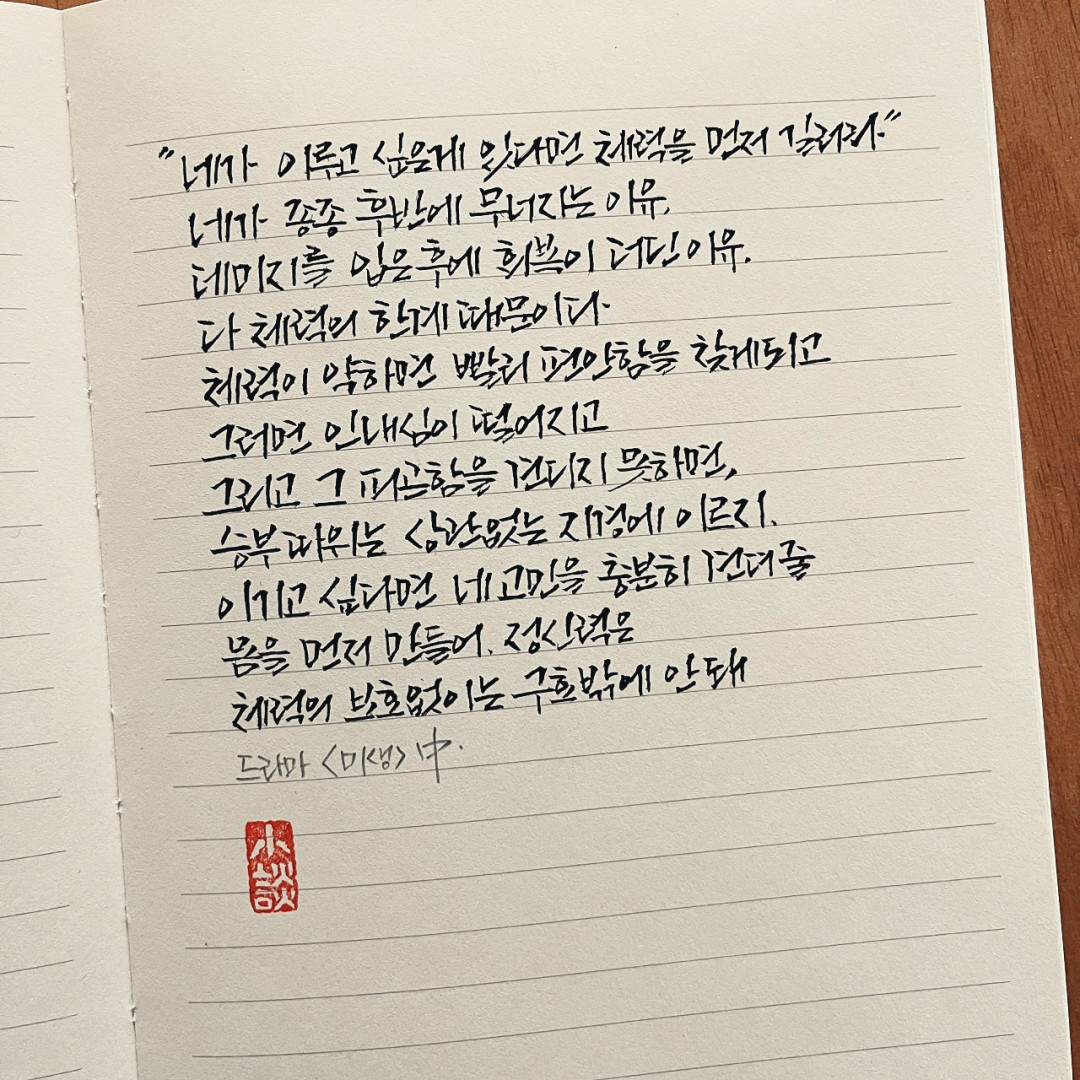 "네가 이루고 싶은게 있다면 체력을 먼저 길러라."
네가 종종 후반에 무너지는 이유,
데미지를 입은 후에 회복이 더딘 이유,
다 체력의 한계 때문이다.
체력이 약하면 빨리 편안함을 찾게되고
그러면 인내심이 떨어지고
그리고 그 피곤함을 견디지 못하면,
승부따위는 상관없는 지경에 이르지.
이기고 싶다면 네 고민을 충분히 견뎌줄
몸을 먼저 만들어. 정신력은
체력의 보호없이는 구호밖에 안돼
드라마 <미생> 中.
小談